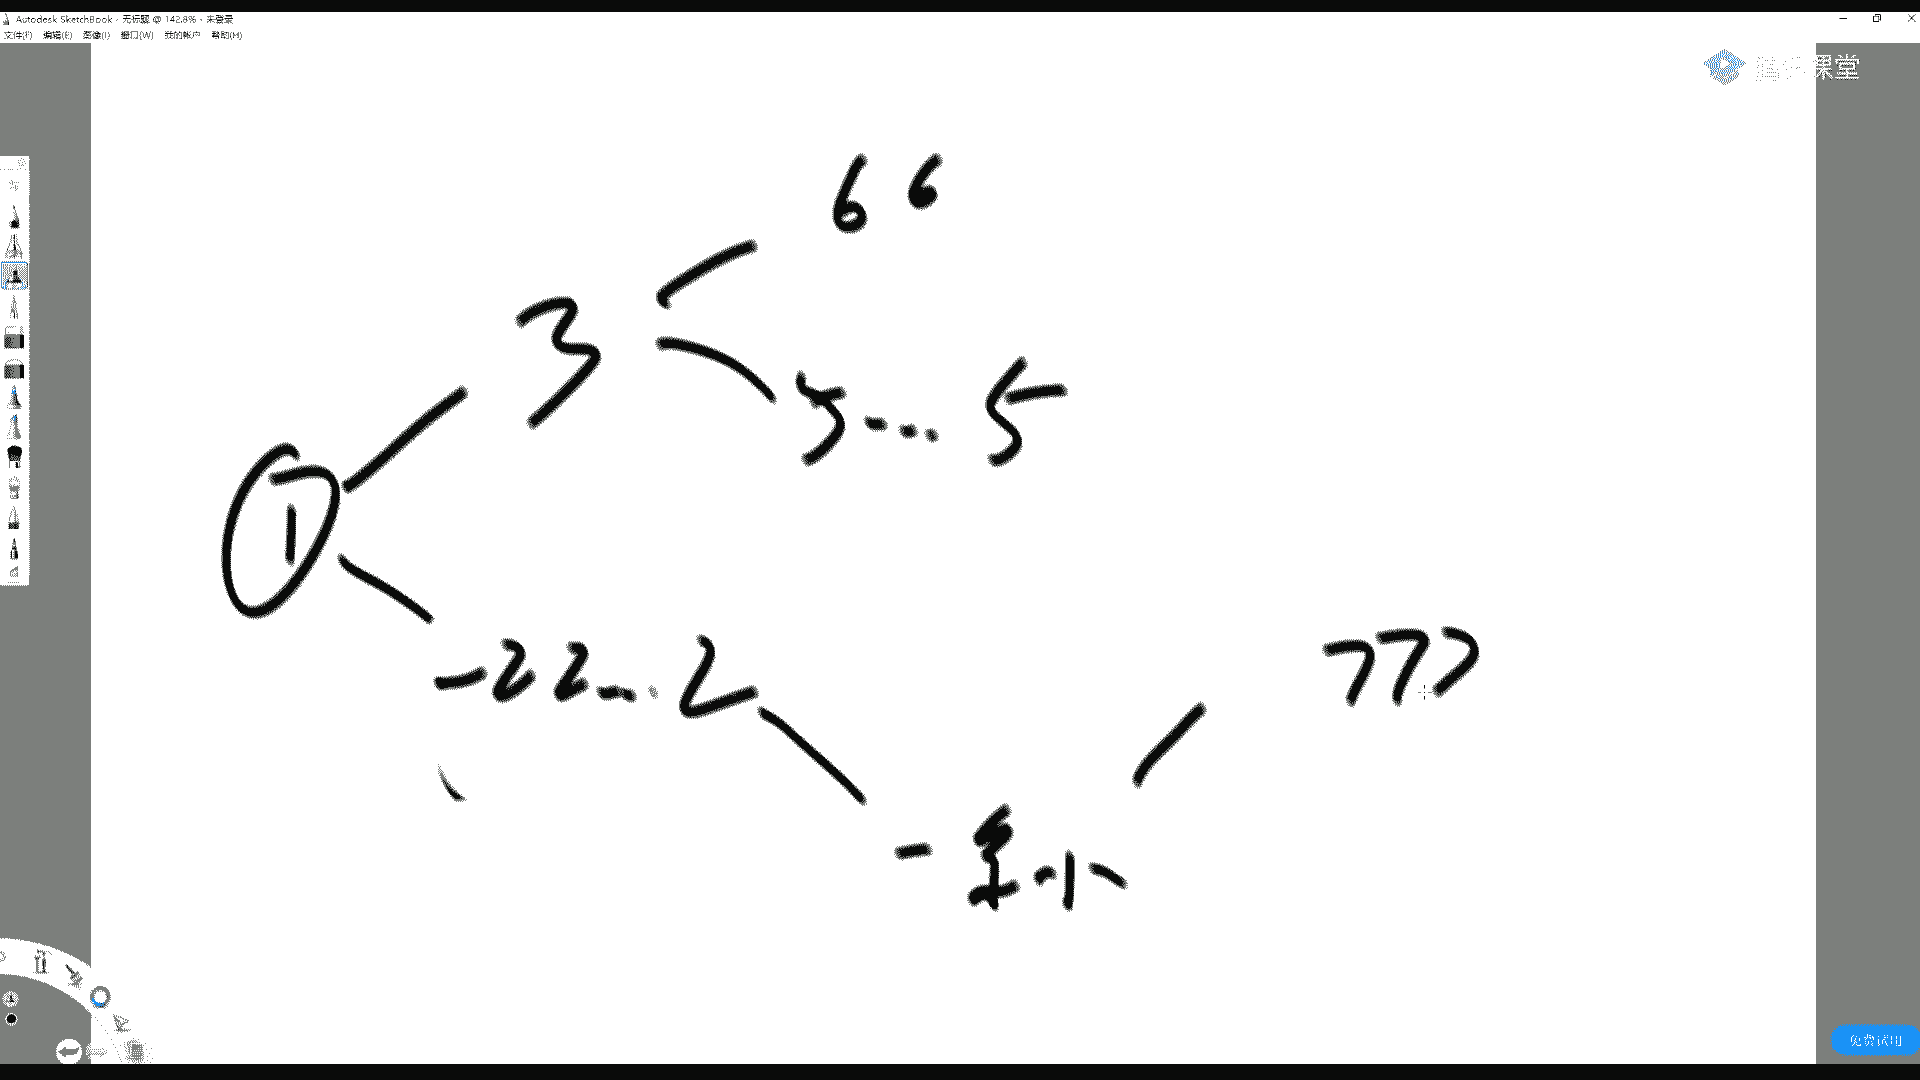 Autodesk SketchBook - 无标题 @ 142.8% - 未登录
文件(F) 编辑(E) 图像(I) 窗口(W) 我的帐户 帮助(H)
腾讯课堂
6 6
3
5 ... 5
1
-2 2 ... 2
7 7 7
免费试用